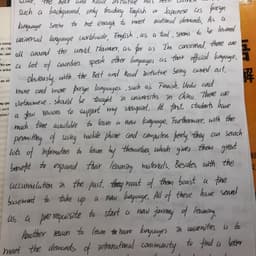 such a background, only treating English or Japanese as foreign
language seems to not enough to meet national demands. As a
universal language worldwide, English, as a tool, seems to be learned
all around the world. However, as far as I'm concerned, there are
a lot of countries speak other languages as their official language.
Obviously, with the Belt and Road initiative being carried out,
more and more foreign languages, such as Finnish, Urdu and
Vietnamese, should be taught in universities in China. There are
a few reasons to support my viewpoint. At first, students have
much time available to learn a new language. Furthermore, with the
permeating of using mobile phone and computers, pretty they can search
lots of information to learn by themselves, which gives them great
benefit to expand their learning materials. Besides, with the
accumulation in the past, they most of them boast a fine
basement to take up a new language. All of these have served
as a pre-requisite to start a new journey of learning.
Another reason to learn to have languages in universities is to
meet the demands of international community to find a better